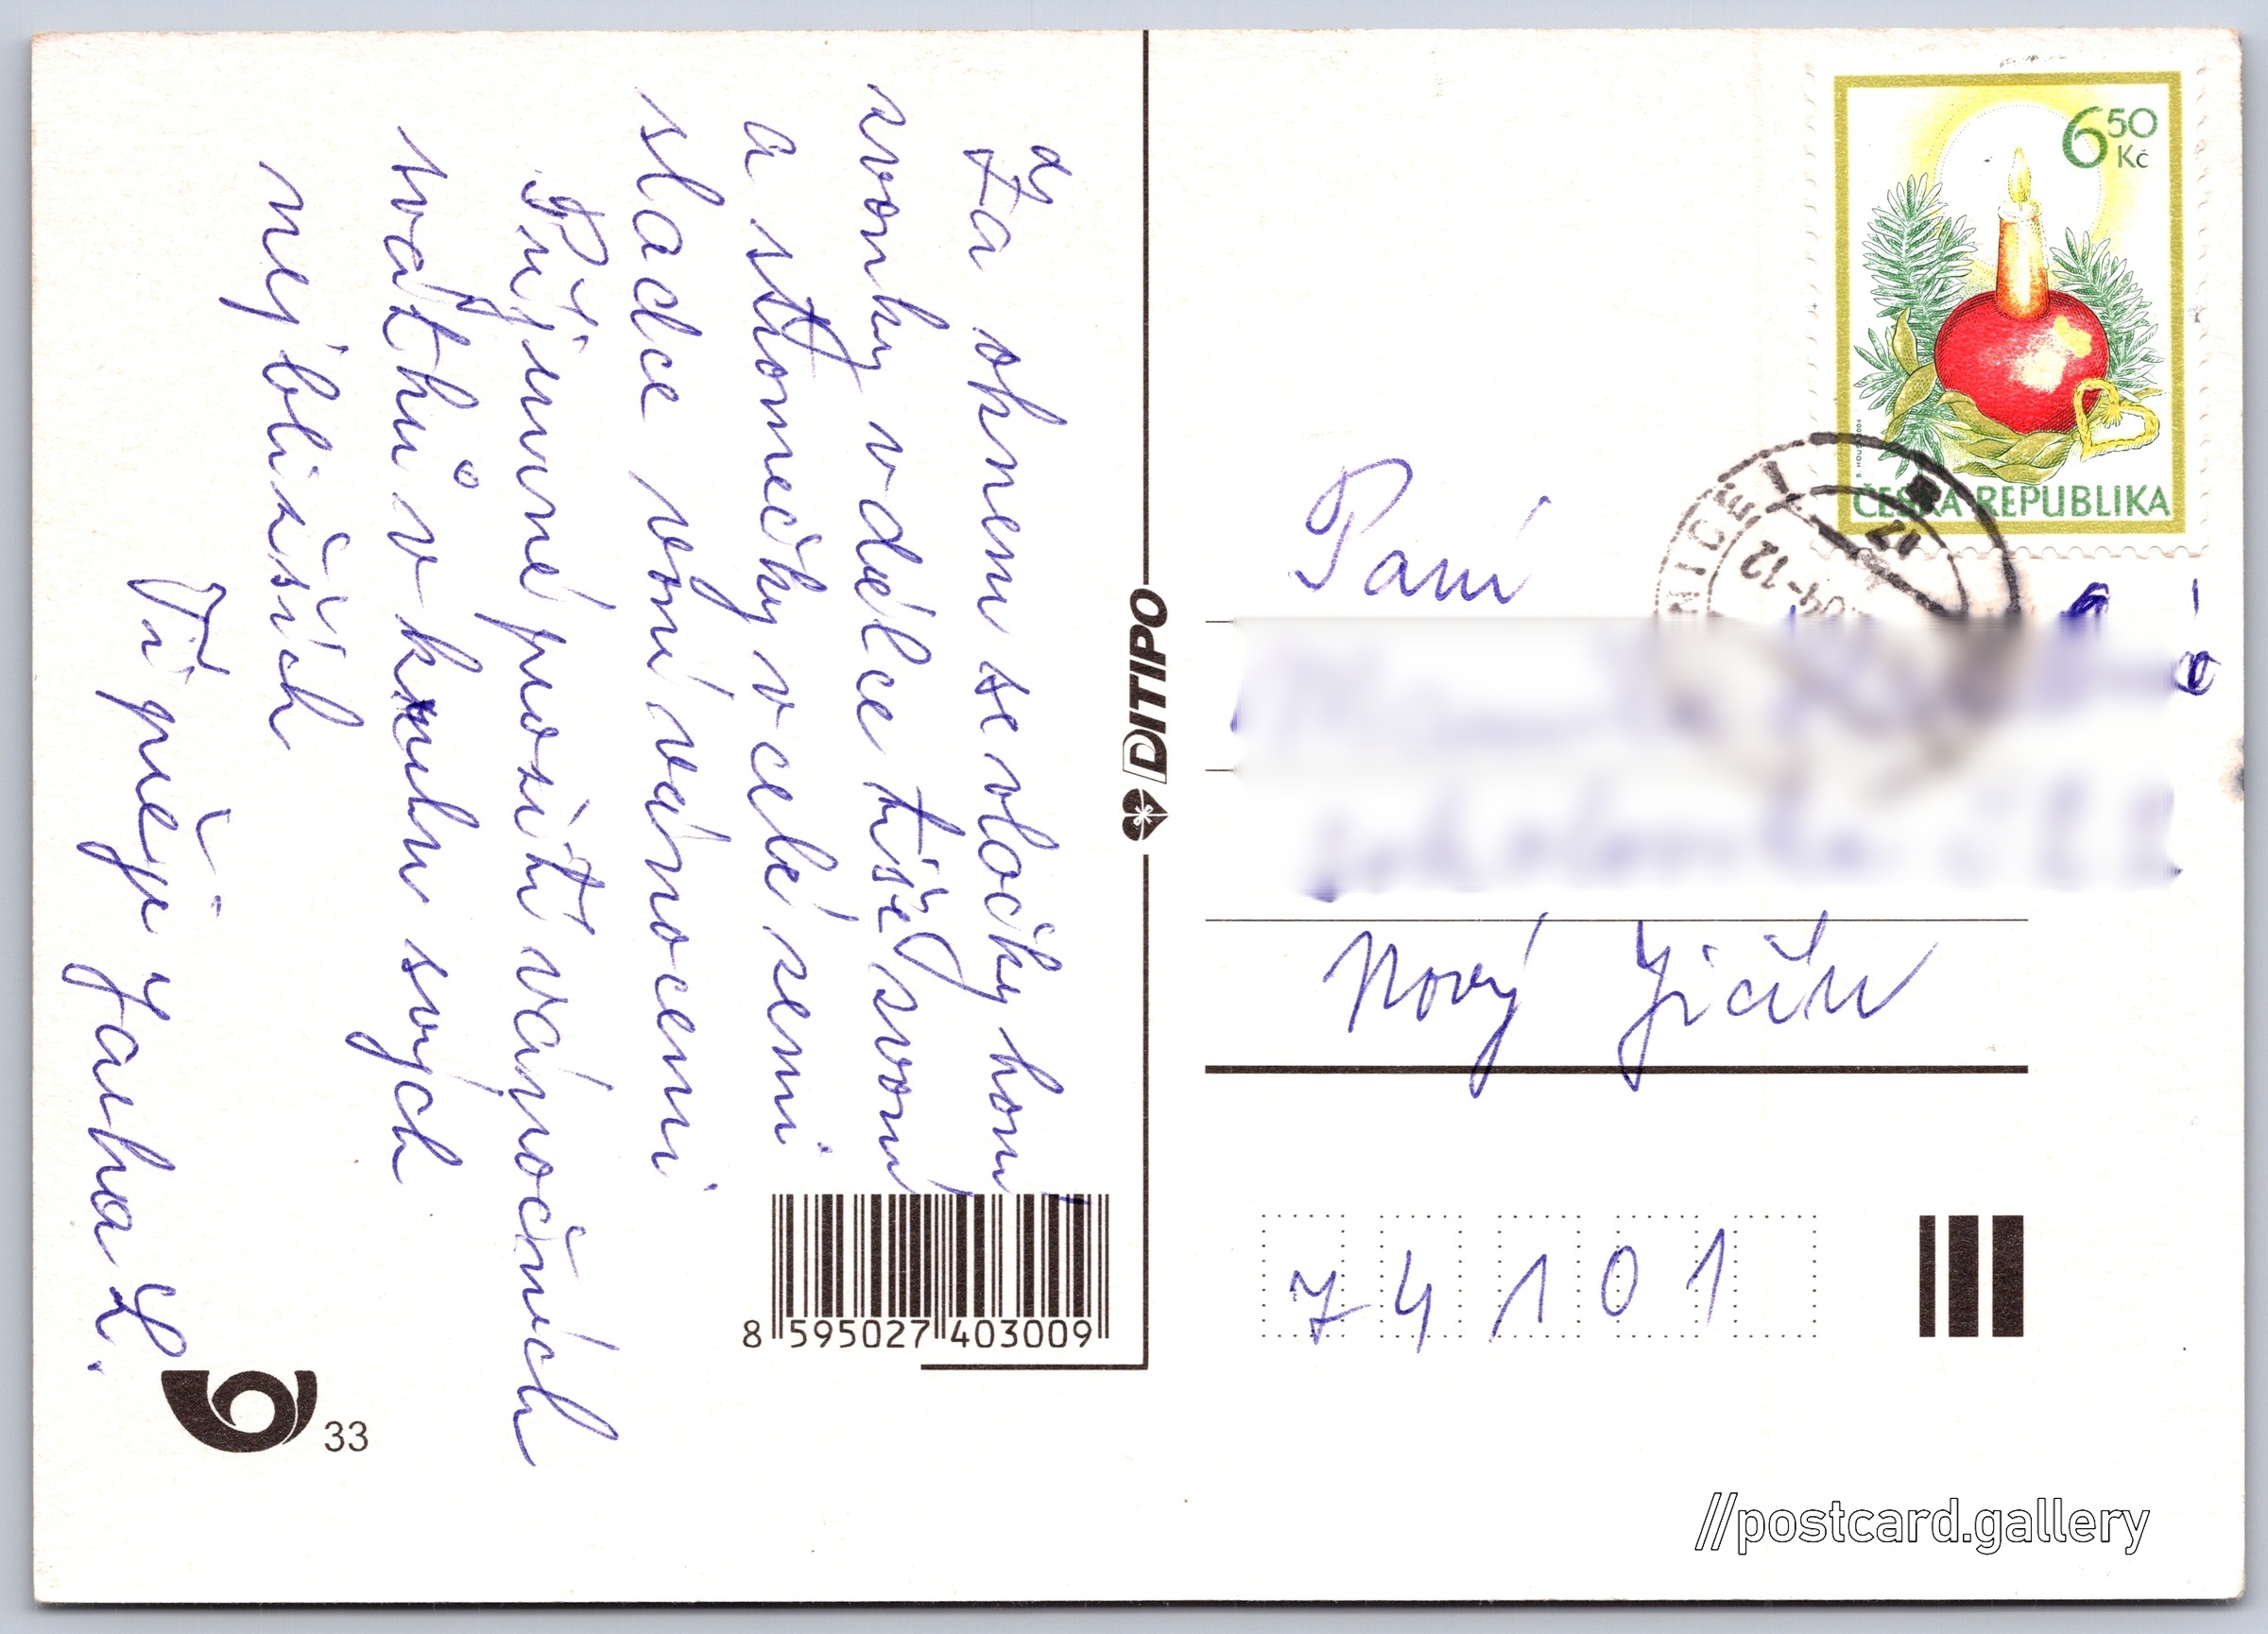 Za oknem se vločky honí
zvonky v dálce tiše zvoní
a stromečky v celé zemi
sladce voní vánocemi
Příjemné prožití vánočních
svátků v kruhu svých
nejbližších
Ti přeje Jarka L.
DITIPO
8 595027 403009
33
6 50 Kč
ČESKA REPUBLIKA
Paní
Nový Jičín
74101
//postcard.gallery